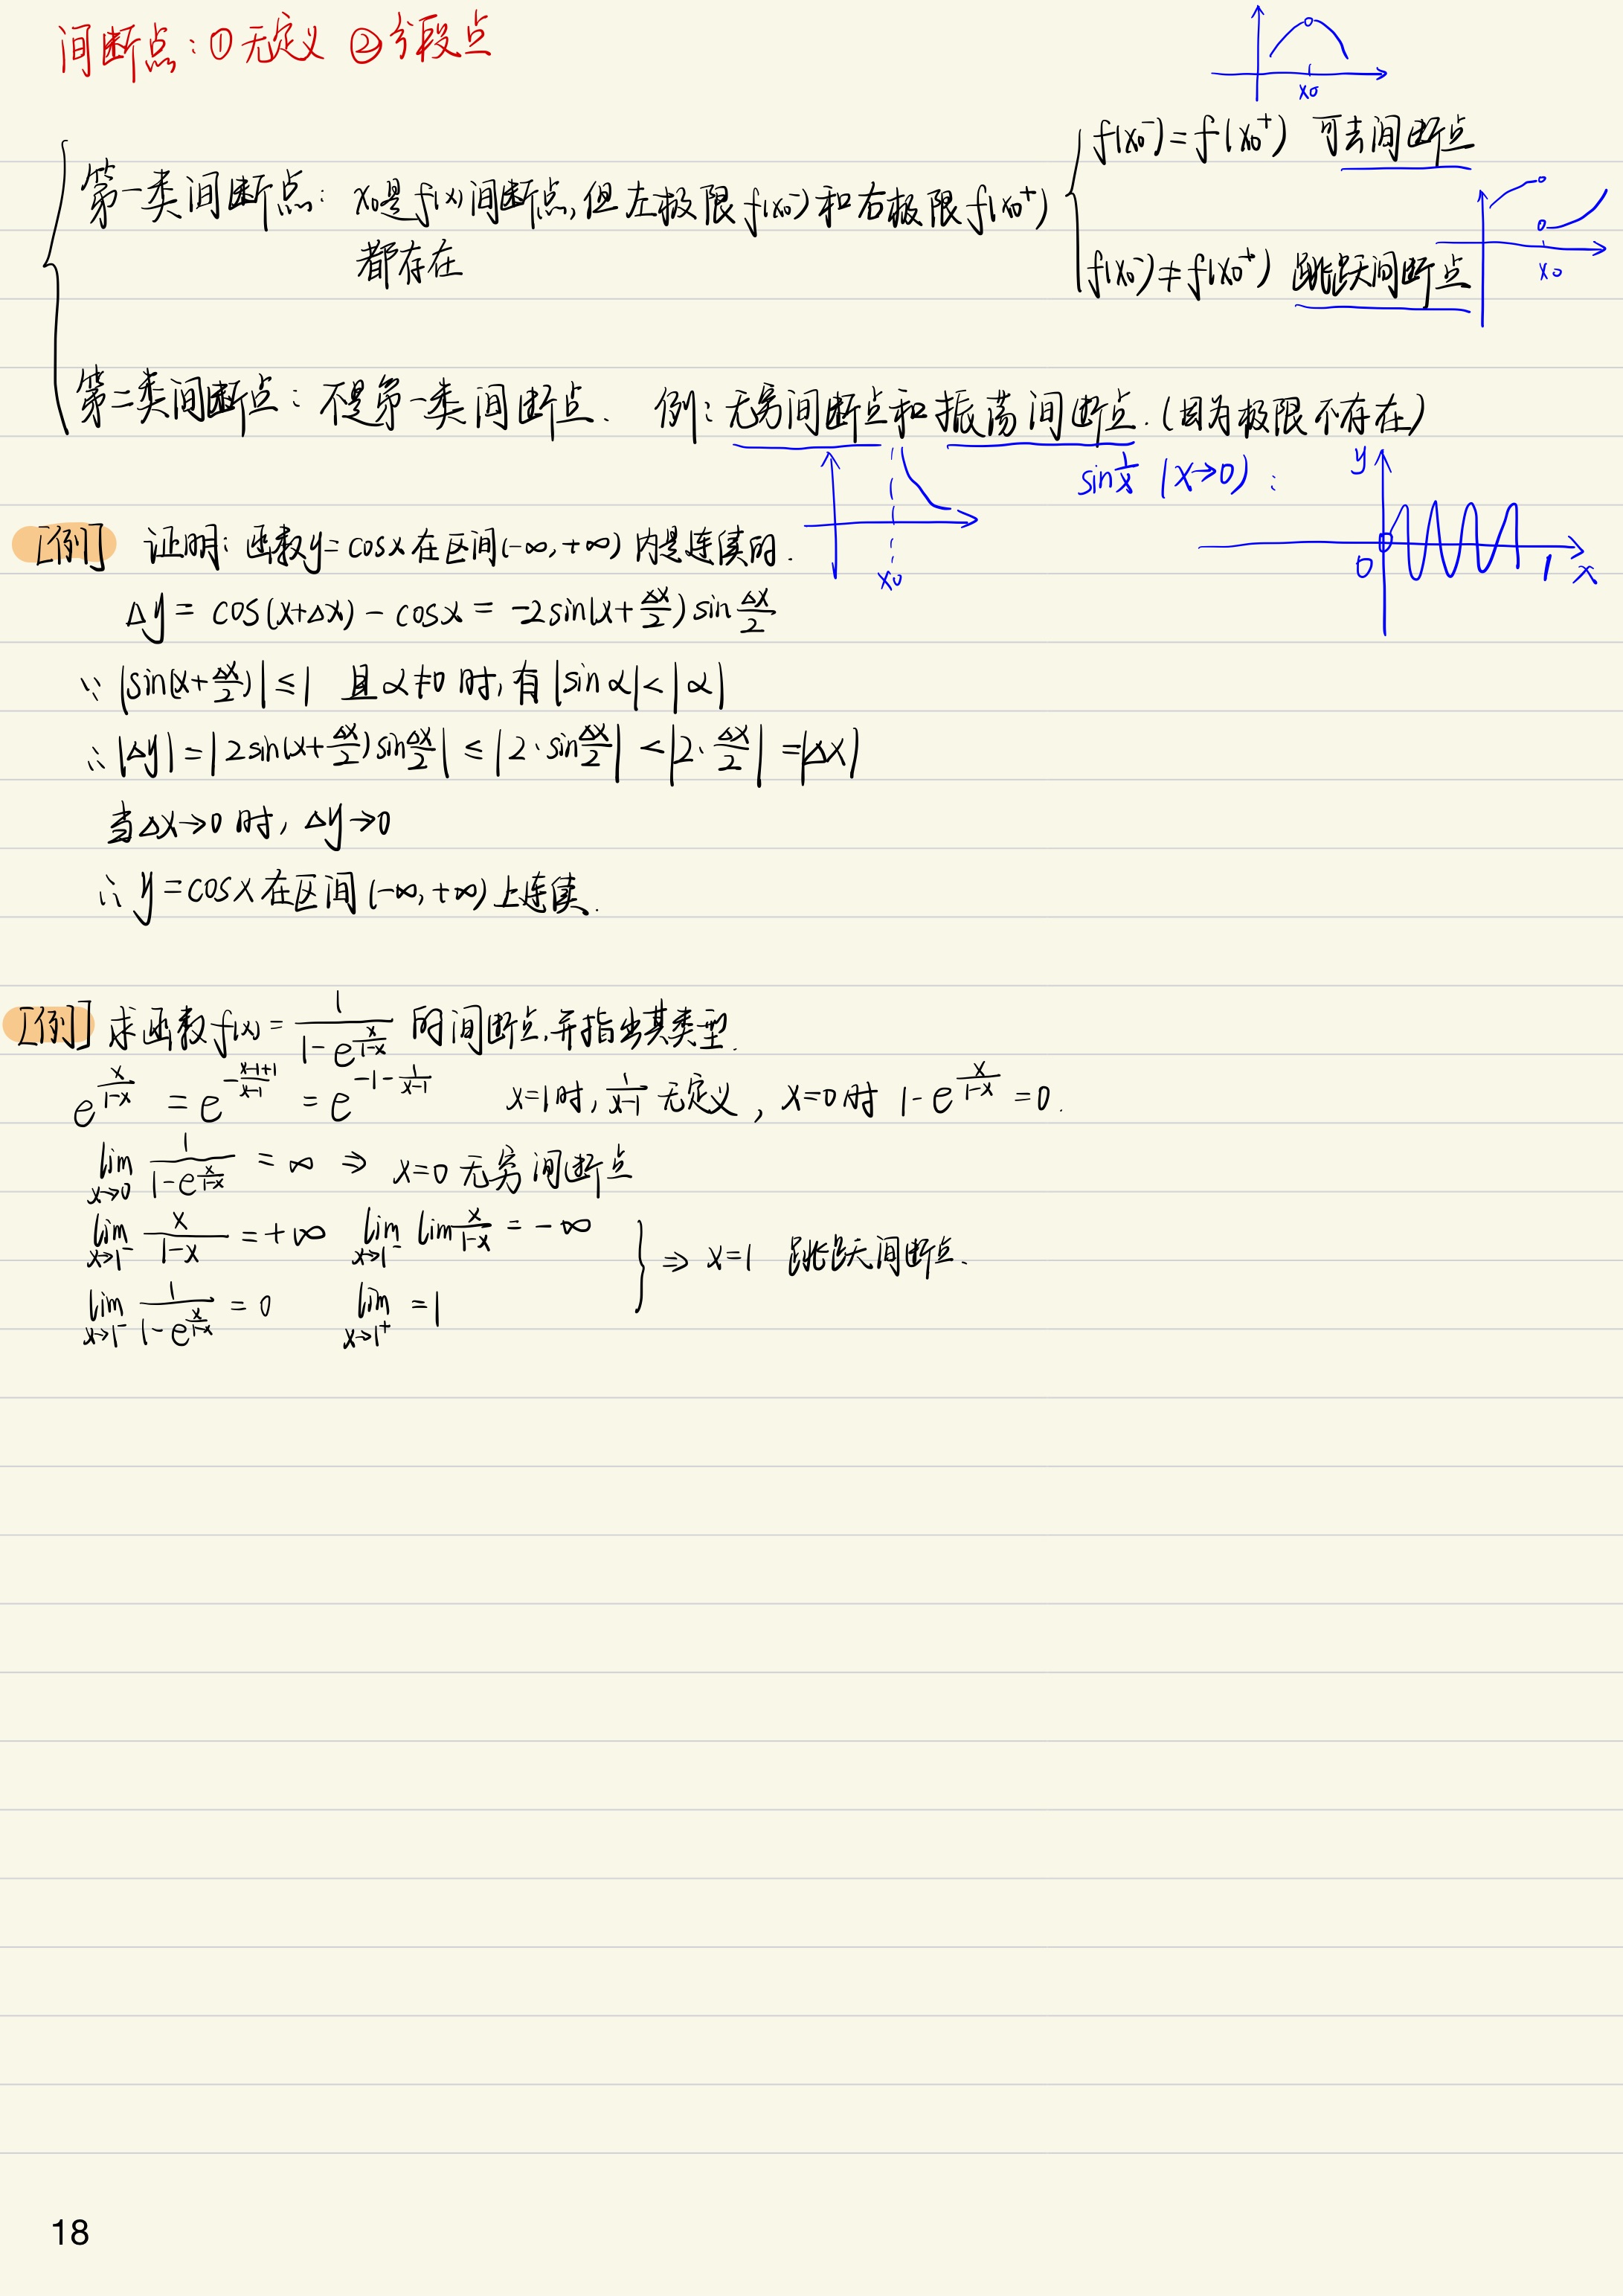 间断点：①无定义 ②分段点
x₀
f(x₀⁻)=f(x₀⁺) 可去间断点
第一类间断点： x₀是f(x)间断点,但左极限f(x₀⁻)和右极限f(x₀⁺)
都存在
x₀
f(x₀⁻)≠f(x₀⁺) 跳跃间断点
第二类间断点：不是第一类间断点. 例：无穷间断点和振荡间断点.(因为极限不存在)
sin 1/x (x→0)：
y
0 1 x
x₀
[例] 证明：函数y=cosx在区间(-∞,+∞)内是连续的.
Δy = cos(x+Δx) - cosx = -2sin(x+Δx/2) sin Δx/2
∵ |sin(x+Δx/2)| ≤ 1 且α≠0时,有|sinα|<|α|
∴ |Δy| = |2sin(x+Δx/2) sin Δx/2| ≤ |2·sin Δx/2| < |2·Δx/2| = |Δx|
当Δx→0时, Δy→0
∴ y=cosx在区间(-∞,+∞)上连续.
[例] 求函数f(x)= 1/(1-e^(x/(1-x))) 的间断点,并指出其类型.
e^(x/(1-x)) = e^(-(x-1+1)/(x-1)) = e^(-1-1/(x-1)) x=1时, 1/(x-1) 无定义, x=0时 1-e^(x/(1-x)) =0.
lim x→0 1/(1-e^(x/(1-x))) = ∞ ⇒ x=0 无穷间断点
lim x→1⁻ x/(1-x) = +∞ lim x→1⁻ lim x/(1-x) = -∞
⇒ x=1 跳跃间断点.
lim x→1⁻ 1/(1-e^(x/(1-x))) = 0 lim x→1⁺ =1
18